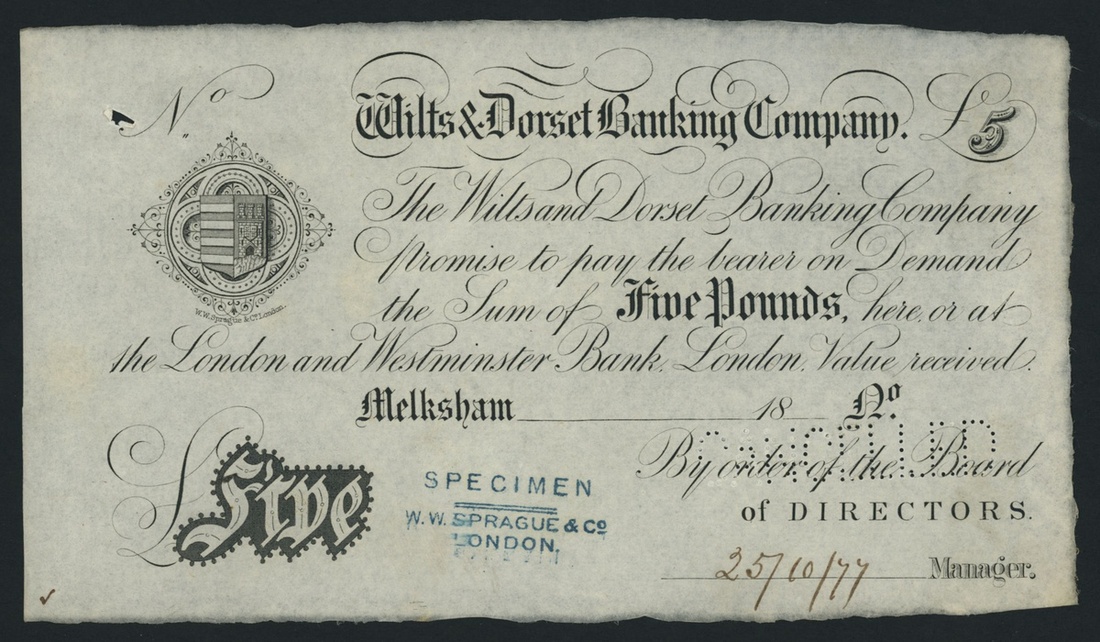 No
Wilts & Dorset Banking Company. £5
The Wilts and Dorset Banking Company
promise to pay the bearer on Demand
the Sum of Five Pounds, here, or at
the London and Westminster Bank, London, Value received.
W.W. Sprague & Co. London.
Melksham 18 No.
CANCELLED
By order of the Board
of DIRECTORS.
£Five
SPECIMEN
W. W. SPRAGUE & Co
LONDON.
25/10/77 Manager.